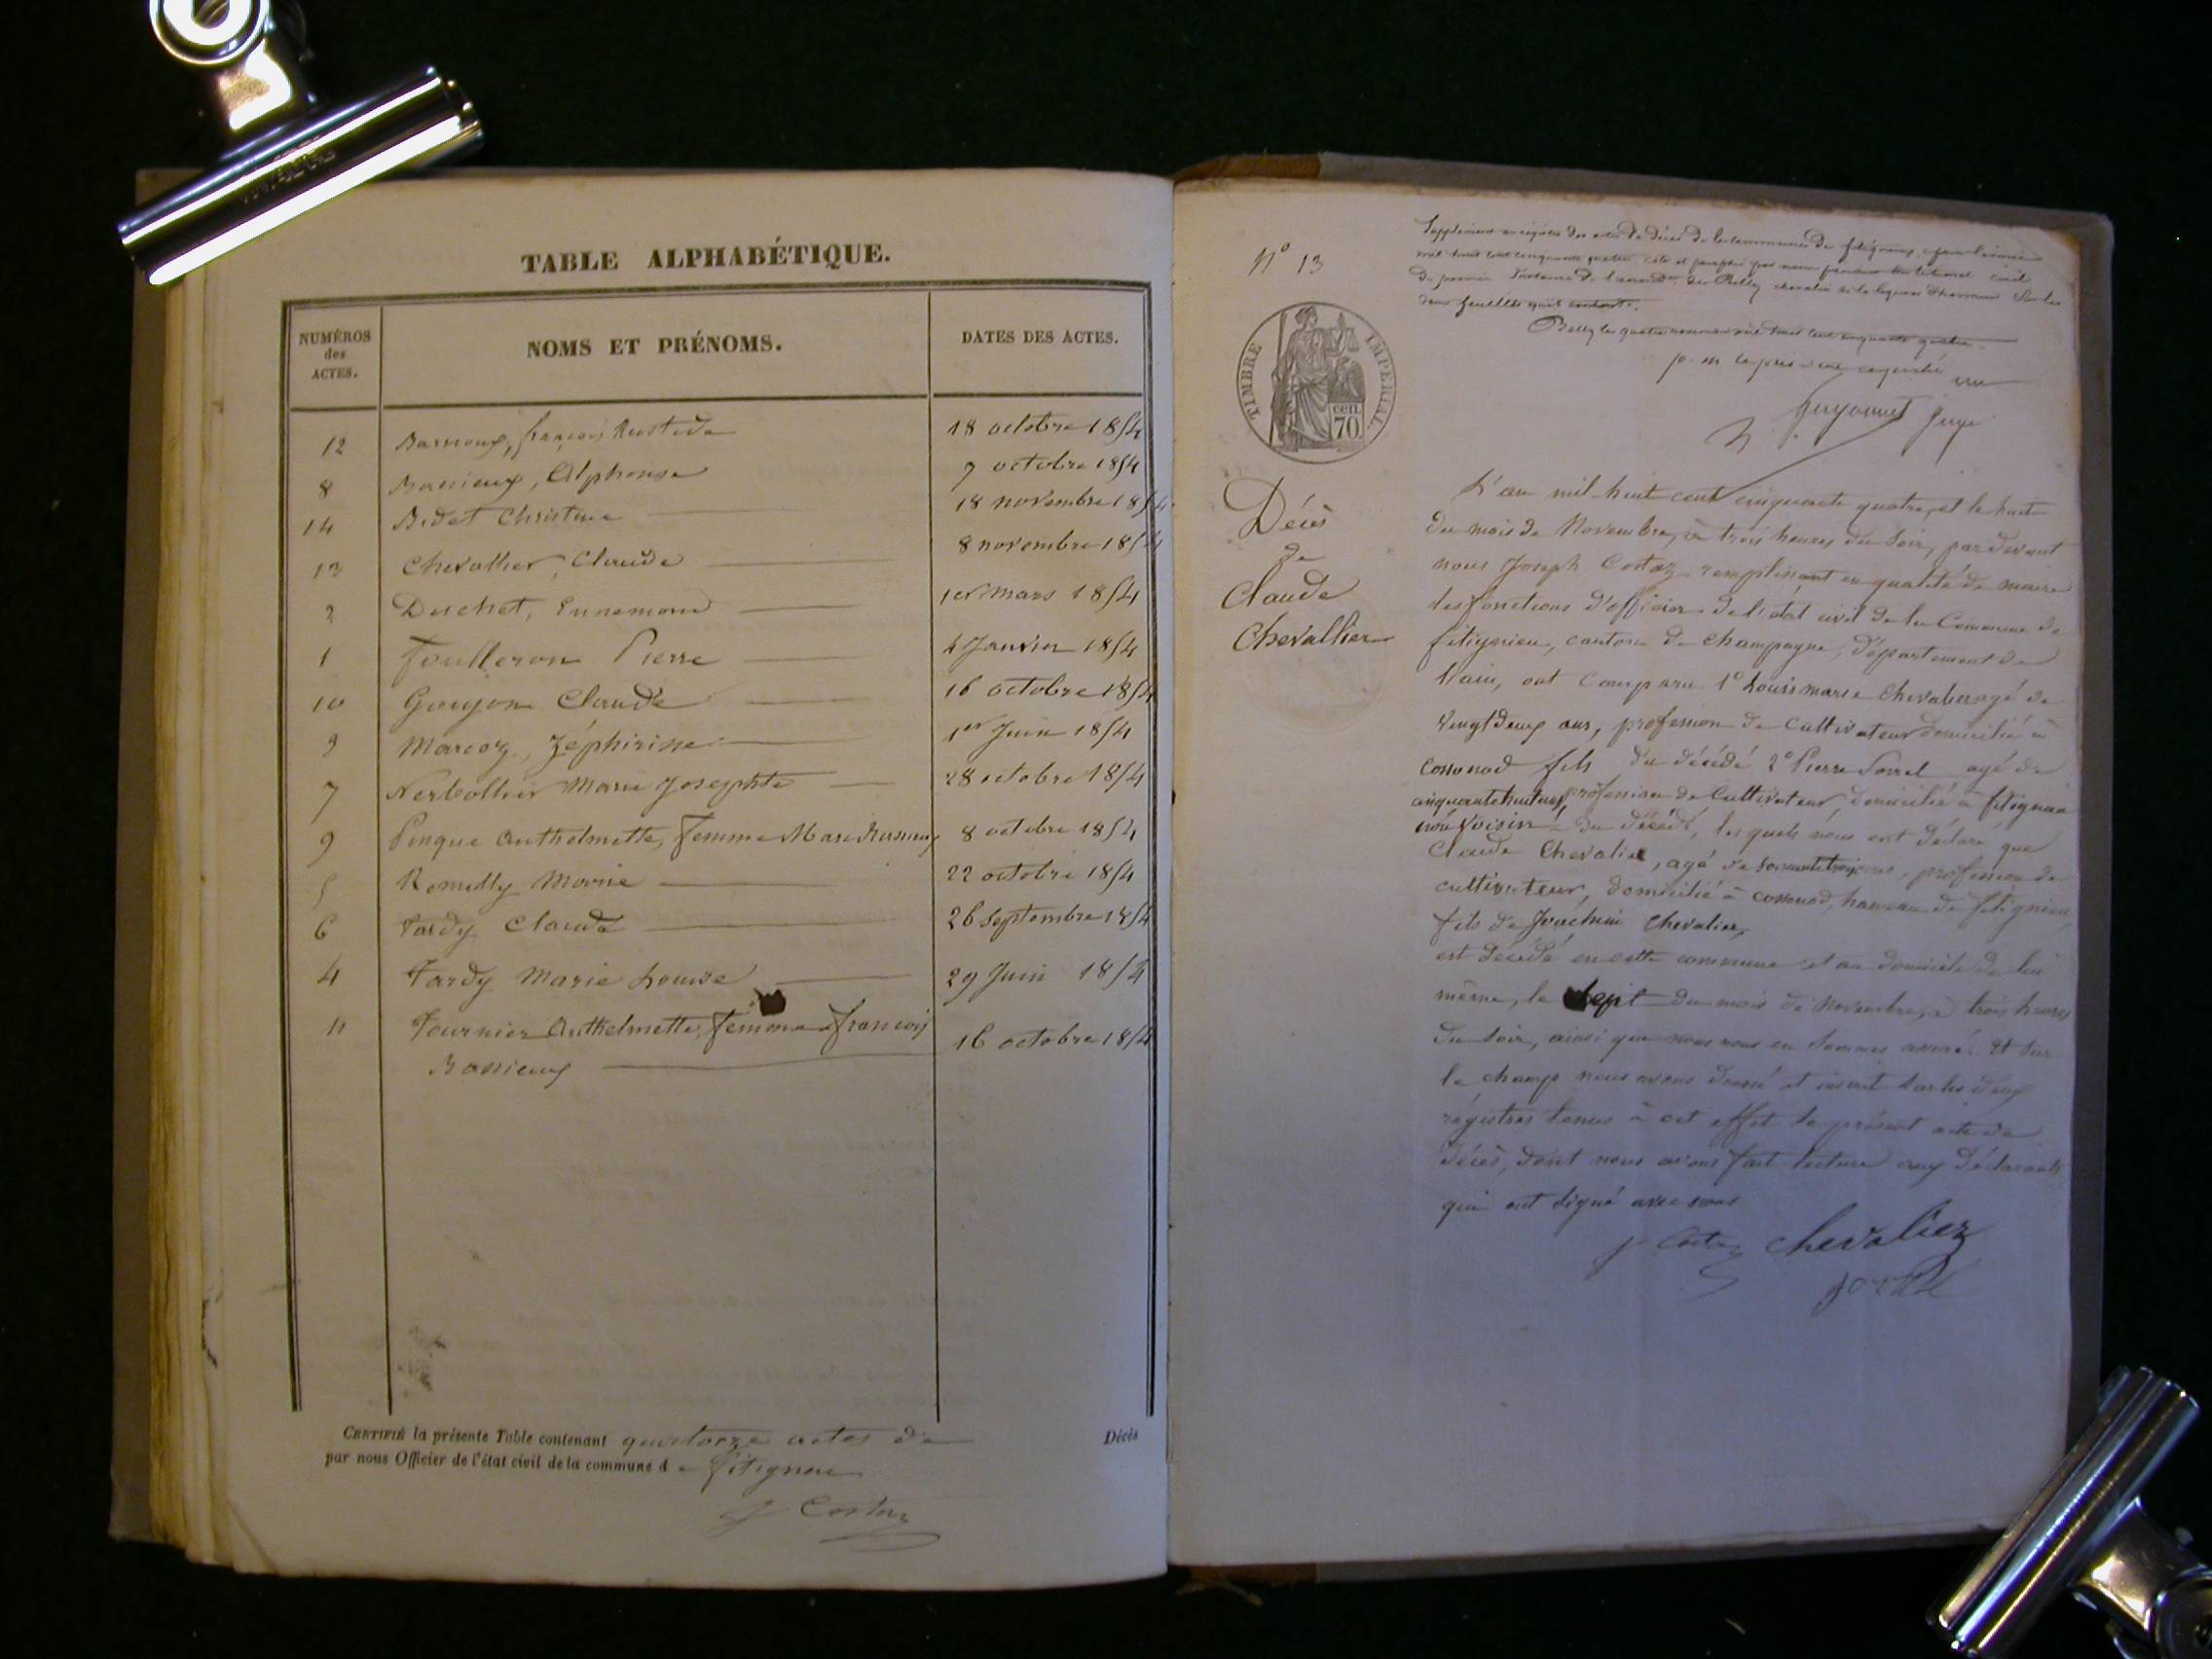 TABLE ALPHABÉTIQUE.
NUMÉROS des ACTES. NOMS ET PRÉNOMS. DATES DES ACTES.
12 françois 18 octobre 1854
8 Alphonse 9 octobre 1854
14 Bidet Christine 18 novembre 1854
13 Chevallier, Claude 8 novembre 1854
2 Duchet, Ennemond 1er Mars 1854
1 Foulleron Pierre 4 Janvier 1854
10 Goujon Claude 16 octobre 1854
3 Marcoz, Zéphirine 1er Juin 1854
7 Nerbollier Marie Josephte 28 octobre 1854
9 Pinque Anthelmette, femme 8 octobre 1854
5 Romilly Marie 22 octobre 1854
6 Tardy Claude 26 Septembre 1854
4 Tardy Marie Louise 29 Juin 1854
11 Tournier Anthelmette, femme françois 16 octobre 1854
Bassieux
CERTIFIÉ la présente Table contenant quatorze actes de Décès
par nous Officier de l'état civil de la commune de fitignieu
J Costaz
N° 13
Supplément au régistre des actes de décès de la commune de fitignieu, pour l'année
mil huit cent cinquante quatre, coté et paraphé par nous civil
de première instance de de Belley chevalier de la légion d'honneur
deux feuilles
Belley le quatre mil huit cent cinquante quatre
p. m le président empêché
juge
TIMBRE IMPÉRIAL
70 cen.
Décès
de
Claude
Chevallier
L'an mil huit cent cinquante quatre, et le huit
du mois de Novembre, à trois heures du soir, par devant
nous Joseph Costaz remplissant en qualité de maire
les fonctions d'officier de l'état civil de la Commune de
fitignieu, canton de Champagne, département de
l'ain, ont comparu 1° Louis marie Chevalier agé de
vingt deux ans, profession de Cultivateur domicilié à
Cossonod fils du décédé 2° Pierre Sorrel agé de
cinquante huit ans, profession de Cultivateur, domicilié à fitignieu
voisin du décédé, les quels nous ont déclaré que
Claude Chevalier, agé de soixante trois ans, profession de
cultivateur, domicilié à Cossonod, hameau de fitignieu,
fils de Joachim Chevalier,
est décédé en cette commune et au domicile de lui
même, le sept du mois de Novembre, à trois heures
du soir, ainsi que nous nous en sommes assuré. Et sur
le champ nous avons dressé et inscrit sur les deux
régistres tenus à cet effet le présent acte de
décès, dont nous avons fait lecture aux déclarants
qui ont signé avec nous
J Costaz Chevaliez